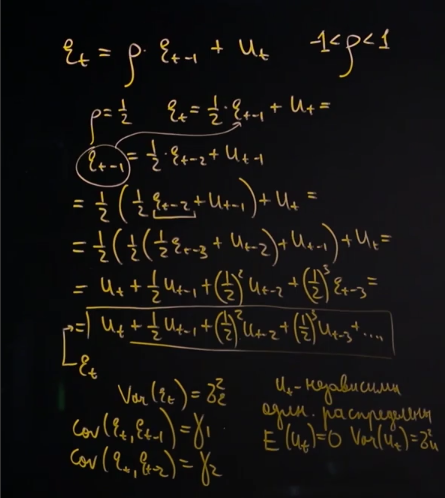 ε_t = ρ · ε_{t-1} + u_t   -1<ρ<1
ρ = 1/2   ε_t = 1/2 · ε_{t-1} + u_t =
ε_{t-1} = 1/2 · ε_{t-2} + u_{t-1}
= 1/2 (1/2 ε_{t-2} + u_{t-1}) + u_t =
= 1/2 (1/2 (1/2 ε_{t-3} + u_{t-2}) + u_{t-1}) + u_t =
= u_t + 1/2 u_{t-1} + (1/2)^2 u_{t-2} + (1/2)^3 ε_{t-3} =
= u_t + 1/2 u_{t-1} + (1/2)^2 u_{t-2} + (1/2)^3 u_{t-3} + ...
ε_t
Var(ε_t) = σ_ε^2
cov(ε_t, ε_{t-1}) = γ_1
cov(ε_t, ε_{t-2}) = γ_2
u_t - независимы
один. распределены
E(u_t) = 0 Var(u_t) = σ_u^2